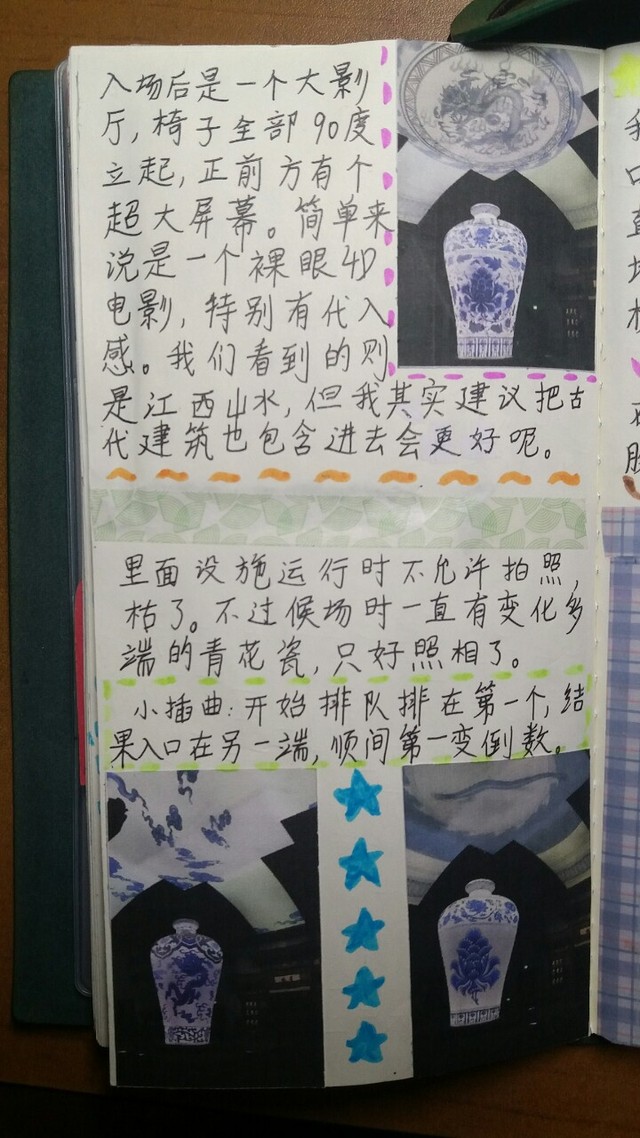 入场后是一个大影
厅,椅子全部90度
立起,正前方有个
超大屏幕。简单来
说是一个裸眼4D
电影,特别有代入
感。我们看到的则
是江西山水,但我其实建议把古
代建筑也包含进去会更好呢。
里面设施运行时不允许拍照,
枯了。不过候场时一直有变化多
端的青花瓷,只好照相了。
小插曲:开始排队排在第一个,结
果入口在另一端,顺间第一变倒数。